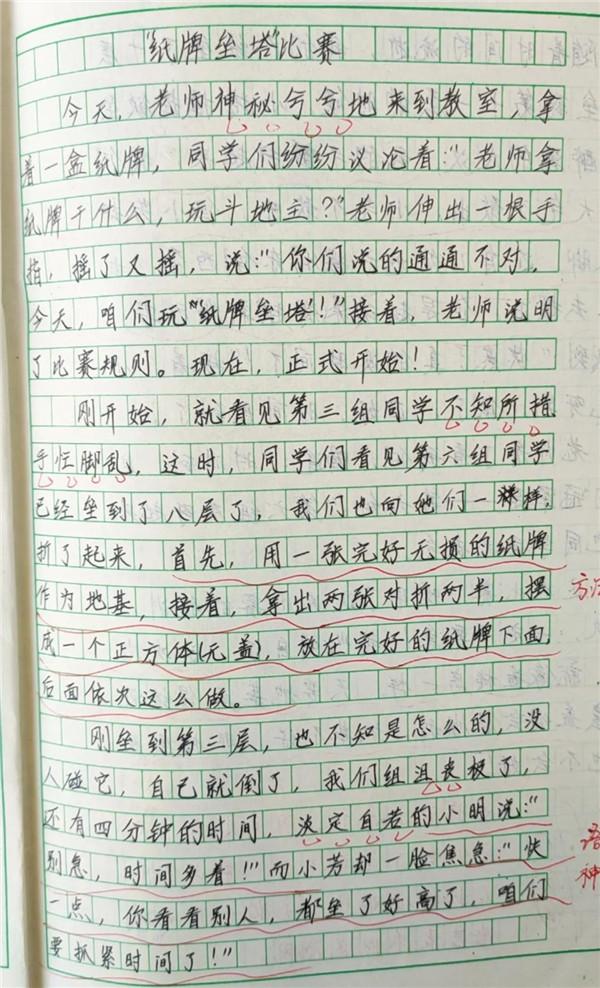 "纸牌垒塔"比赛
今天，老师神秘兮兮地来到教室，拿
着一盒纸牌，同学们纷纷议论着："老师拿
纸牌干什么，玩斗地主？"老师伸出一根手
指，摇了又摇，说："你们说的通通不对，
今天，咱们玩"'纸牌垒塔'！"接着，老师说明
了比赛规则。现在，正式开始！
刚开始，就看见第三组同学不知所措
手忙脚乱，这时，同学们看见第六组同学
已经垒到了八层了，我们也向她们一样，
折了起来，首先，用一张完好无损的纸牌
作为地基，接着，拿出两张对折两半，摆
成一个正方体(无盖)，放在完好的纸牌下面，
后面依次这么做。
刚垒到第三层，也不知是怎么的，没
人碰它，自己就倒了，我们组沮丧极了，
还有四分钟的时间，淡定自若的小明说："
别急，时间多着！"而小芳却一脸焦急："快
一点，你看看别人，都垒了好高了，咱们
要抓紧时间了！"
方法
神